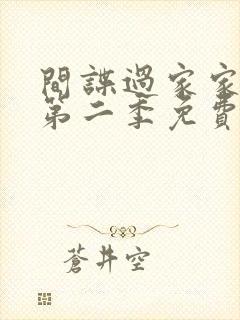 間諜過家家
第二季免費
蒼井空